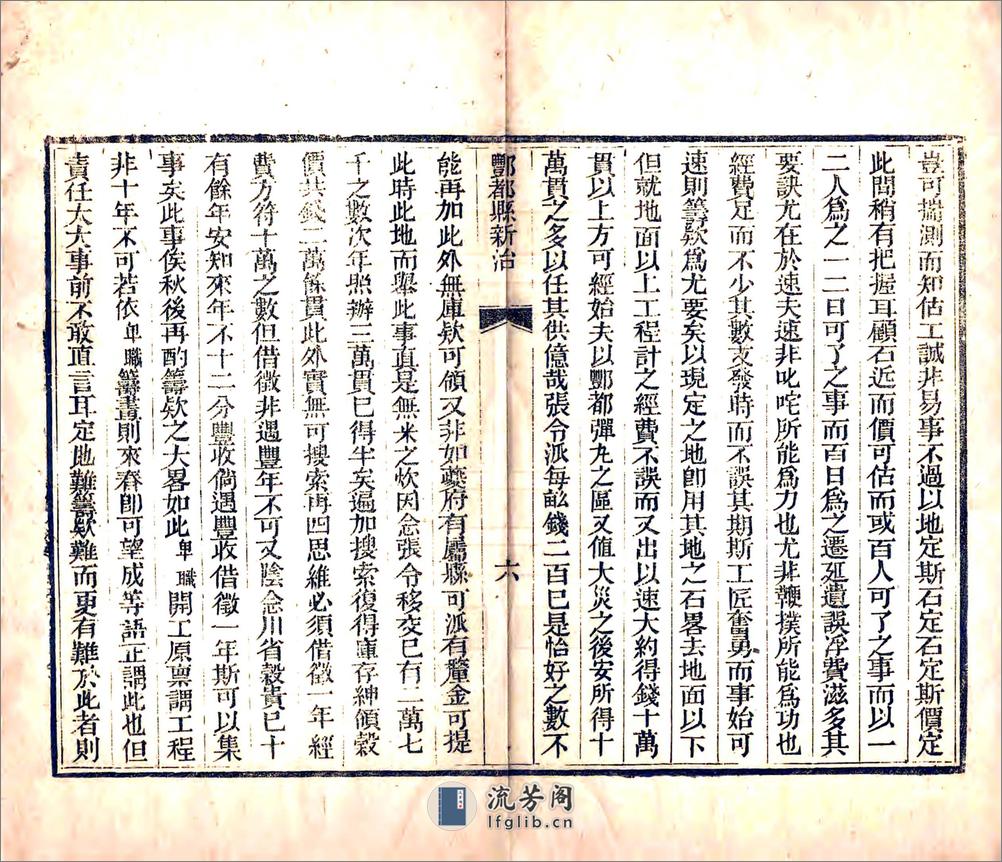 豈可揣測而知估工誠非易事不過以地定斯石定石定斯價定
此間稍有把握耳顧石近而價可估而或百人可了之事而以一
二人爲之一二日可了之事而百日爲之遷延遺誤浮費滋多其
要訣尤在於速夫速非叱咤所能爲力也尤非鞭撲所能爲功也
經費足而不少其數支發時而不誤其期斯工匠奮勇而事始可
速則籌欵爲尤要矣以現定之地卽用其地之石畧去地面以下
但就地面以上工程計之經費不誤而又出以速大約得錢十萬
貫以上方可經始夫以酆都彈丸之區又值大災之後安所得十
萬貫之多以任其供億哉張令派每畝錢二百已是恰好之數不
酆都縣新治
六
能再加此外無庫欵可領又非如夔府有屬縣可派有釐金可提
此時此地而舉此事直是無米之炊因念張令移交已有二萬七
千之數次年照辦三萬貫已得半矣遍加搜索復得庫存紳領穀
價共錢二萬餘貫此外實無可搜索再四思維必須借徵一年經
費方符十萬之數但借徵非遇豐年不可又陰念川省穀貴已十
有餘年安知來年不十二分豐收倘遇豐收借徵一年斯可以集
事矣此事俟秋後再酌籌欵之大畧如此卑職開工原禀謂工程
非十年不可若依卑職籌畫則來春卽可望成等語正謂此也但
責任太大事前不敢直言耳定地難籌欵難而更有難於此者則
流芳阁
lfglib.cn